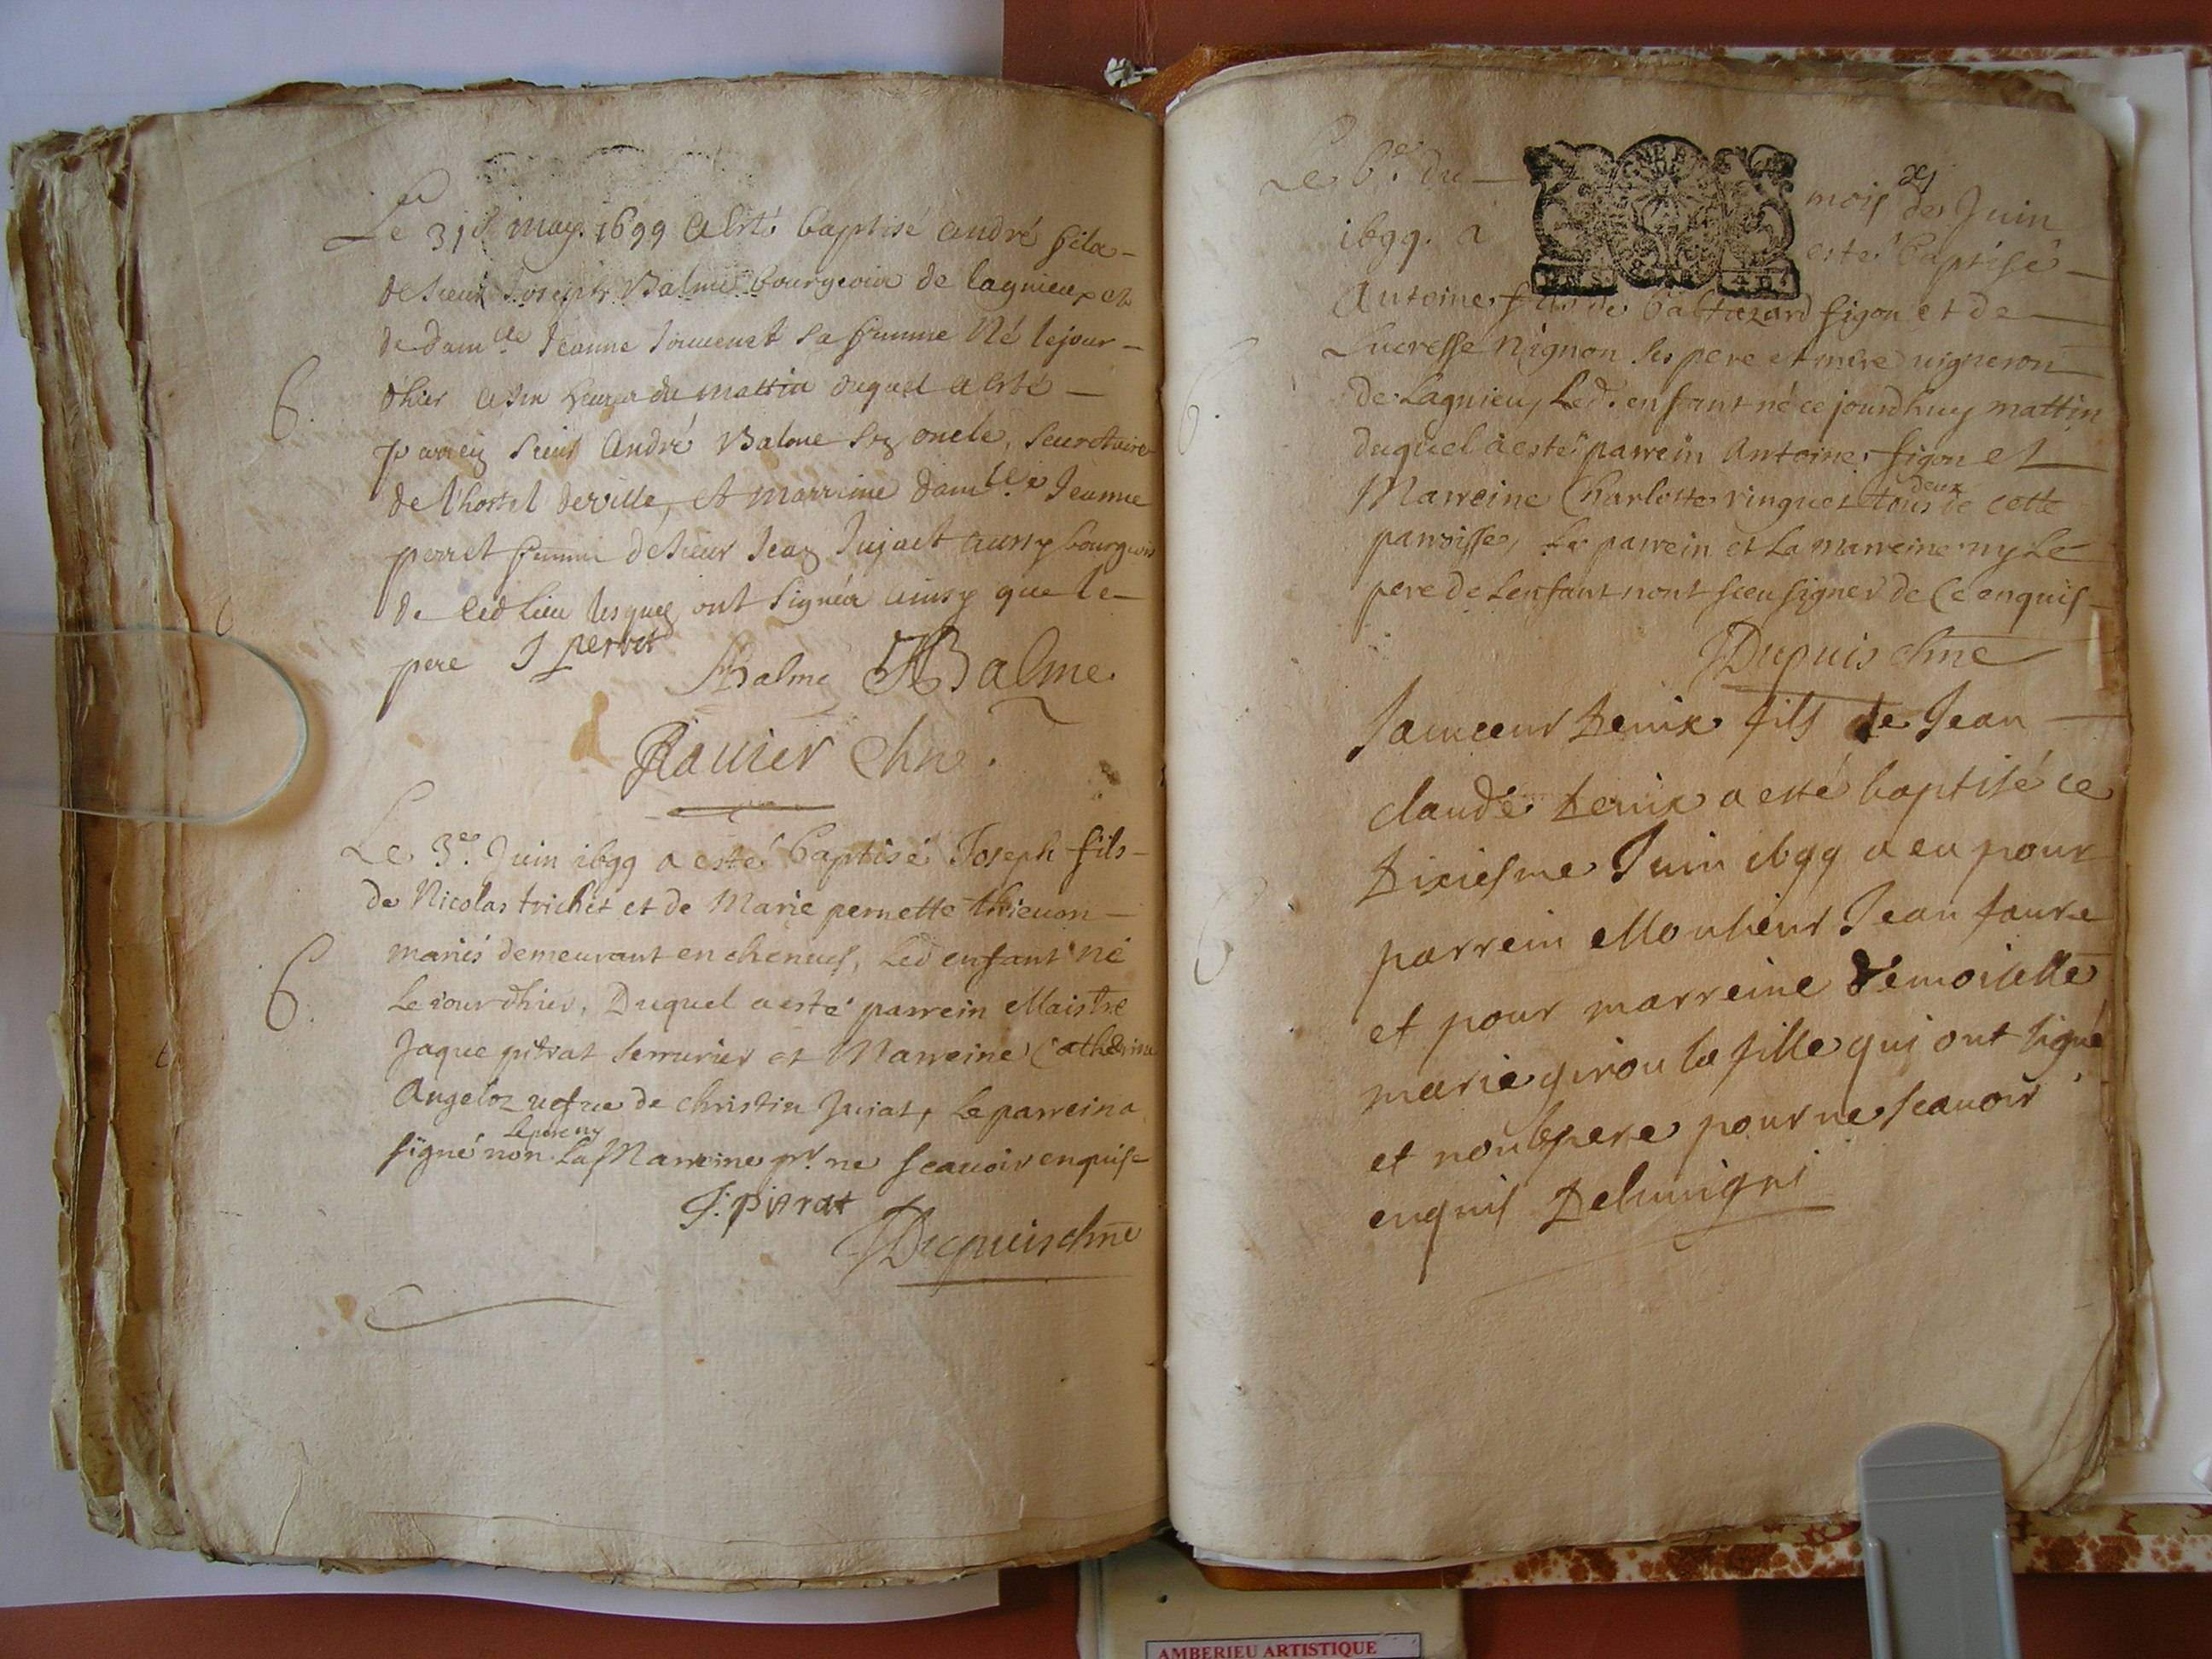 Le 31e may 1699 a esté baptisé andré fils
de sieur Joseph Balme bourgeois de lagnieu et
de damlle Jeanne Jouuenet sa femme Né le jour
d'hier a six heures du mattin duquel a esté
B.
parrein sieur André Balme son oncle, secretaire
de l'hostel de ville, et marreine damlle Jeanne
perret femme de sieur Jean Jujact aussy bourgeois
de ced lieu lesquels ont signés ainsy que le
pere J perret Balme JBalme
Rauier chne.
Le 3e. Juin 1699 a esté baptisé Joseph fils
de Nicolas trichet et de Marie pernette
mariés demeurant en cheneuf, Led enfant né
B.
Le jour d'hier, Duquel a esté parrein Maistre
Jaque pitrat serrurier et Marreine Catherine
Angeloz uefue de christin Juiat, Le parrein a
Le pere ny
signé non La Marreine pr. ne scauoir enquise
J. pitrat
Dupuis chne
Le 6e. du mois de Juin
1699. a esté baptisé
Antoine fils de baltazard figon et de
Lucresse Nignon ses pere et mere uigneron
B.
de Lagnieu, Led. enfant né ce jourdhuy mattin
duquel a esté parrein Antoine figon et
deux
Marreine Charlotte ringuet tous de cette
parroisse, Le parrein et La marreine ny Le
pere de Lenfant nont sceu signer de Ce enquis
Dupuis chne
Denix fils de Jean
claude Denix a esté baptisé ce
Dixiesme Juin 1699 a eu pour
B
parrein Monsieur Jean faure
et pour marreine Demoiselle
marie girou sa fille qui ont signé
et non le pere pour ne scauoir
enquis
AMBERIEU ARTISTIQUE